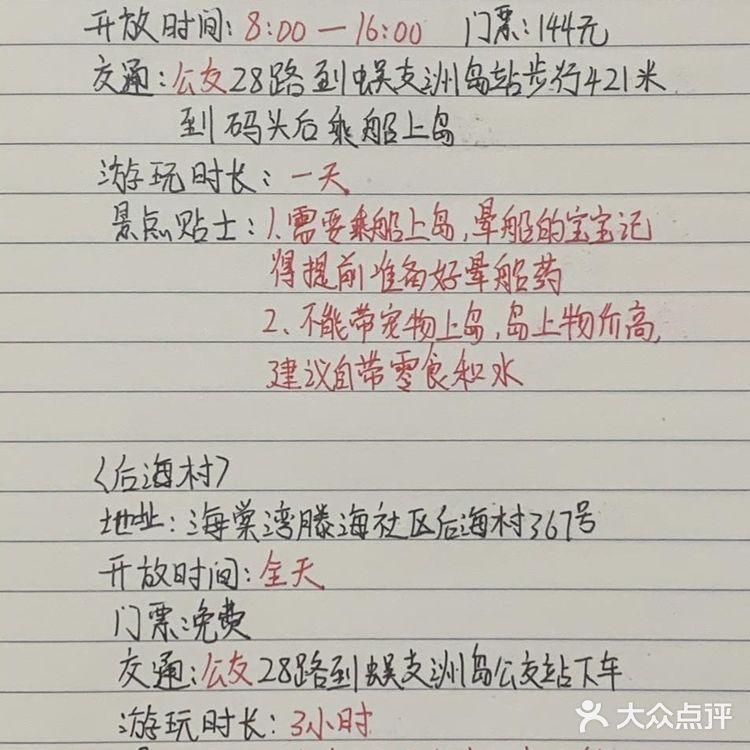 开放时间: 8:00—16:00 门票:144元
交通:公交28路到蜈支洲岛站步行421米
到码头后乘船上岛
游玩时长:一天
景点贴士:1.需要乘船上岛,晕船的宝宝记
得提前准备好晕船药
2、不能带宠物上岛,岛上物价高,
建议自带零食和水
〈后海村〉
地址:海棠湾藤海社区后海村367号
开放时间:全天
门票:免费
交通:公交28路到蜈支洲岛公交站下车
游玩时长:3小时
大众点评